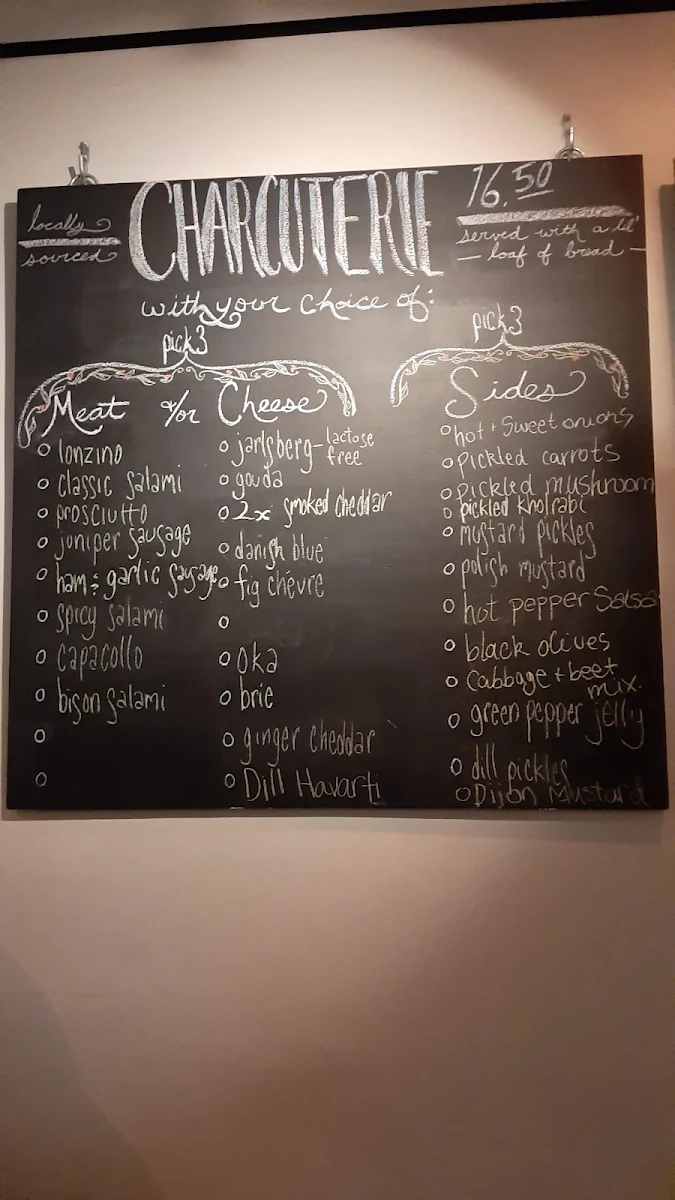 locally
sourced
CHARCUTERIE
16.50
served with a lil'
— loaf of bread —
with your choice of:
pick3
Meat &/or Cheese
lonzino
classic salami
prosciutto
juniper sausage
ham & garlic sausage
spicy salami
capacollo
bison salami
jarlsberg - lactose
free
gouda
2x smoked cheddar
danish blue
fig chévre
oka
brie
ginger cheddar
Dill Havarti
pick3
Sides
hot + sweet onions
pickled carrots
pickled mushroom
pickled kholrabi
mustard pickles
polish mustard
hot pepper Salsa
black olives
Cabbage + beet
mix.
green pepper jelly
dill pickles
Dijon Mustard